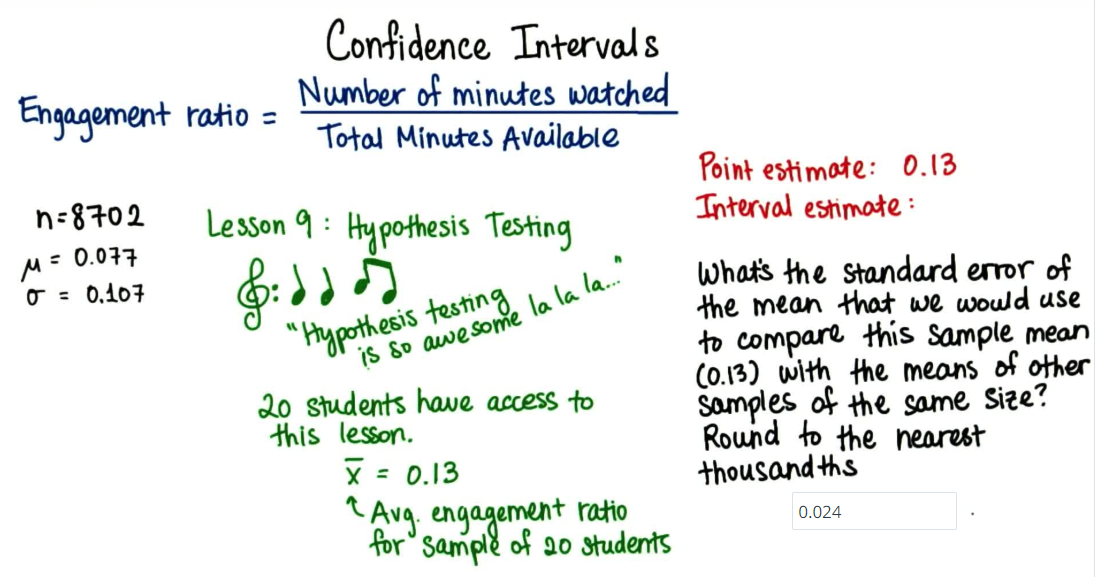 Confidence Intervals
Engagement ratio = Number of minutes watched
Total Minutes Available
n=8702
μ = 0.077
σ = 0.107
Lesson 9: Hypothesis Testing
"Hypothesis testing
is so awesome la la la..."
20 students have access to
this lesson.
x̄ = 0.13
↑ Avg. engagement ratio
for sample of 20 students
Point estimate: 0.13
Interval estimate:
What's the standard error of
the mean that we would use
to compare this sample mean
(0.13) with the means of other
samples of the same size?
Round to the nearest
thousandths
0.024